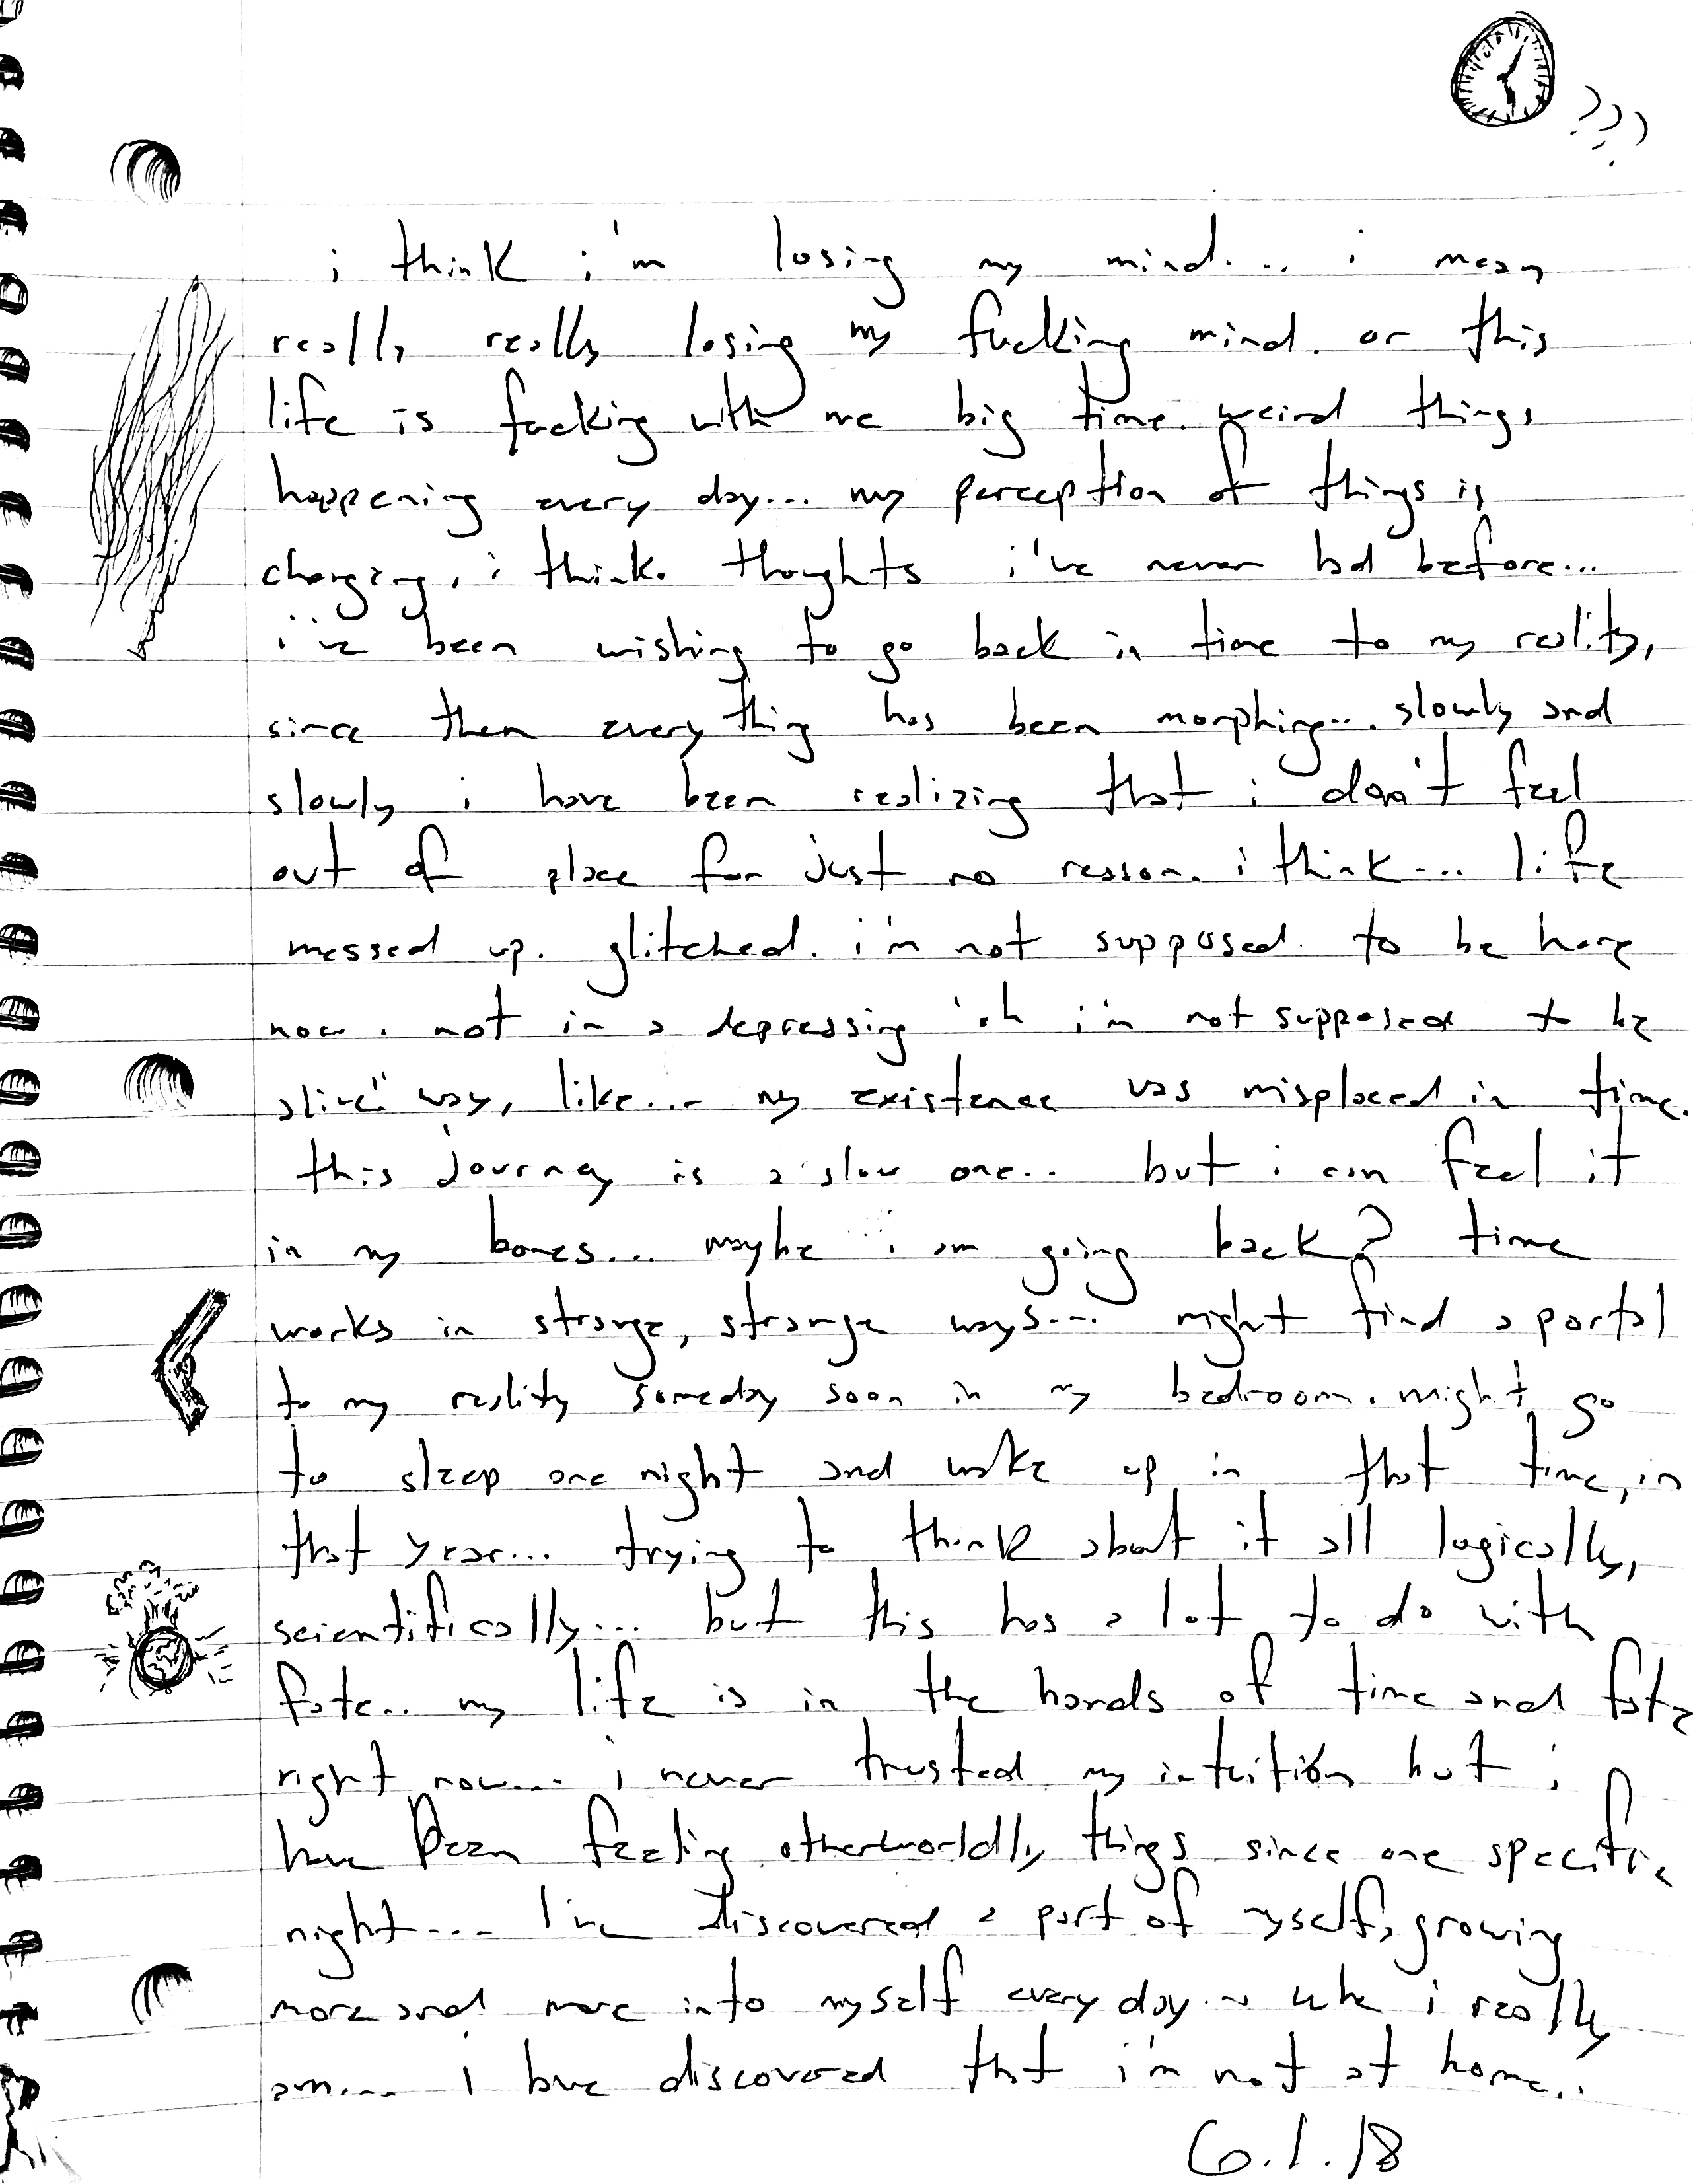 ???
i think i'm losing my mind... i mean
really really losing my fucking mind. or this
life is fucking with me big time. weird things
happening every day... my perception of things is
changing, i think. thoughts i've never had before...
i've been wishing to go back in time to my reality,
since then everything has been morphing... slowly and
slowly i have been realizing that i don't feel
out of place for just no reason. i think... life
messed up. glitched. i'm not supposed to be here
now. not in a depressing "oh i'm not supposed to be
alive" way, like... my existence was misplaced in time.
this journey is a slow one... but i can feel it
in my bones... maybe i am going back? time
works in strange, strange ways... might find a portal
to my reality someday soon in my bedroom. might go
to sleep one night and wake up in that time, in
that year... trying to think about it all logically,
scientifically... but this has a lot to do with
fate... my life is in the hands of time and fate
right now... i never trusted my intuition but i
have been feeling otherworldly things since one specific
night... I've discovered a part of myself, growing
more and more into myself every day.. who i really
am... i have discovered that i'm not at home...
6.1.18